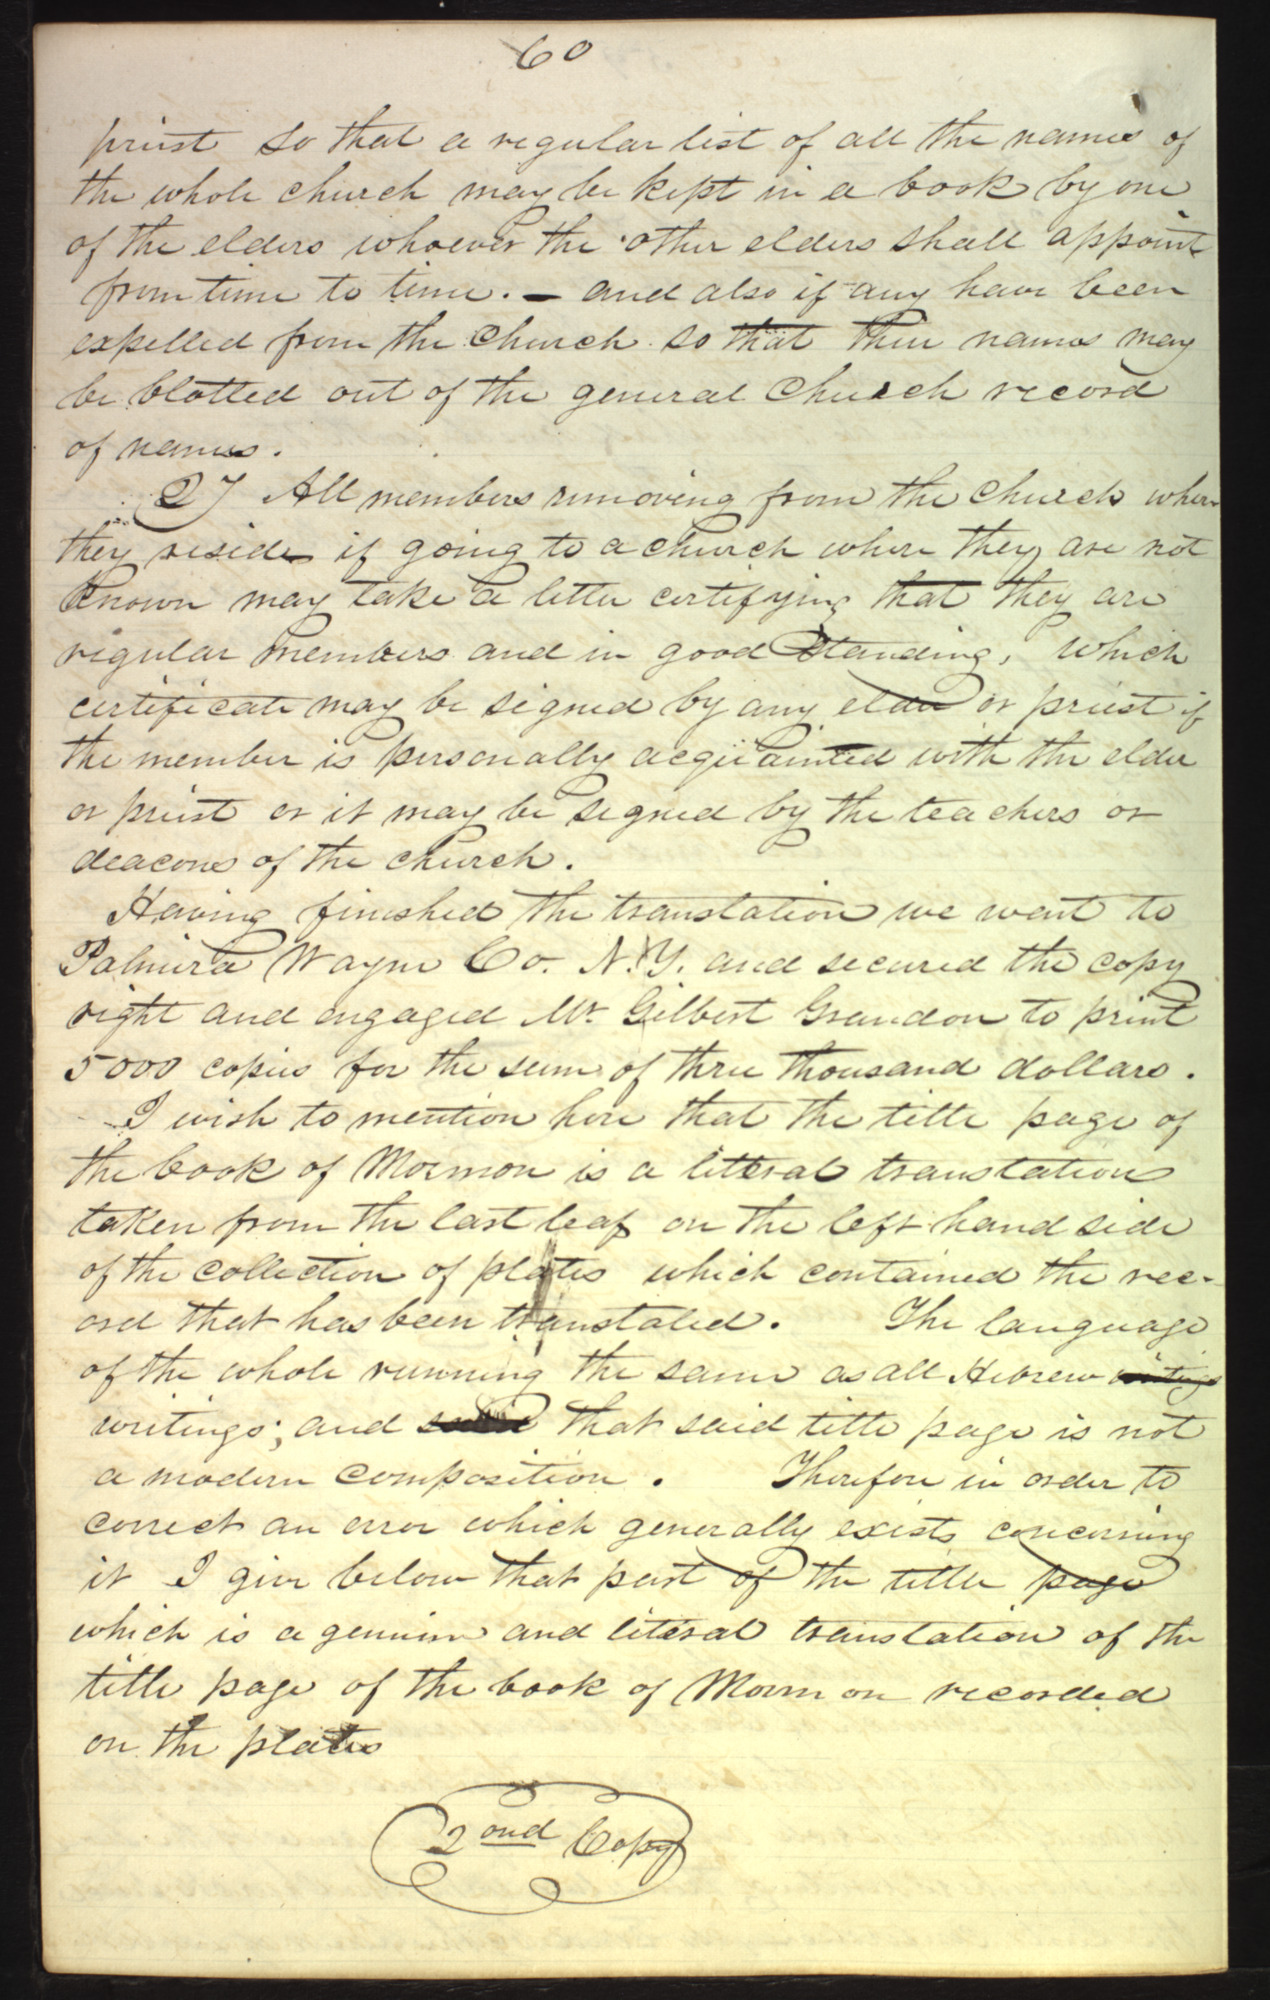 60
priest so that a regular list of all the names of
the whole church may be kept in a book by one
of the elders whoever the other elders shall appoint
from time to time. — and also if any have been
expelled from the church so that their names may
be blotted out of the general Church record
of names.
27 All members removing from the church where
they reside if going to a church where they are not
known may take a letter certifying that they are
regular members and in good standing, which
certificate may be signed by any elder or priest if
the member is personally acquainted with the elder
or priest or it may be signed by the teachers or
deacons of the church.
Having finished the translation we went to
Palmira Wayne Co. N.Y. and secured the copy
right and engaged Mr Gilbert Grandon to print
5000 copies for the sum of three thousand dollars.
I wish to mention here that the title page of
the book of Mormon is a litteral translation
taken from the last leaf on the left hand side
of the collection of plates which contained the rec-
ord that has been translated. The language
of the whole running the same as all Hebrew writings
writings; and that said title page is not
a modern composition. Therefore in order to
correct an error which generally exists concerning
it I give below that part of the title page
which is a genuine and literal translation of the
title page of the book of Mormon recorded
on the plates
2ond Copy